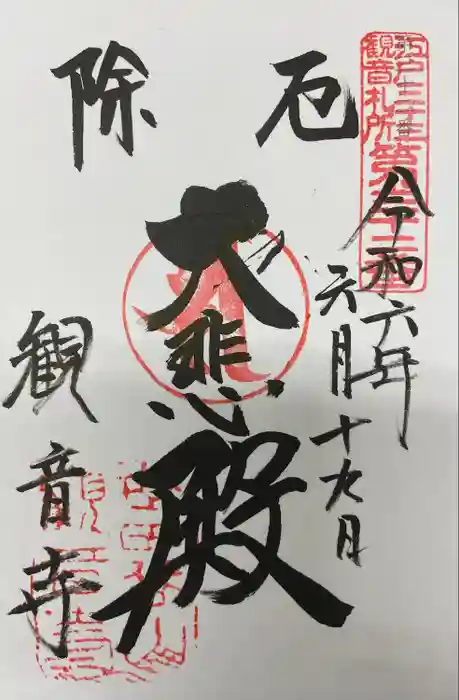 江戸三十三番
観音札所第三十二番
令和六年
六月十九日
厄除
大悲殿
観音寺